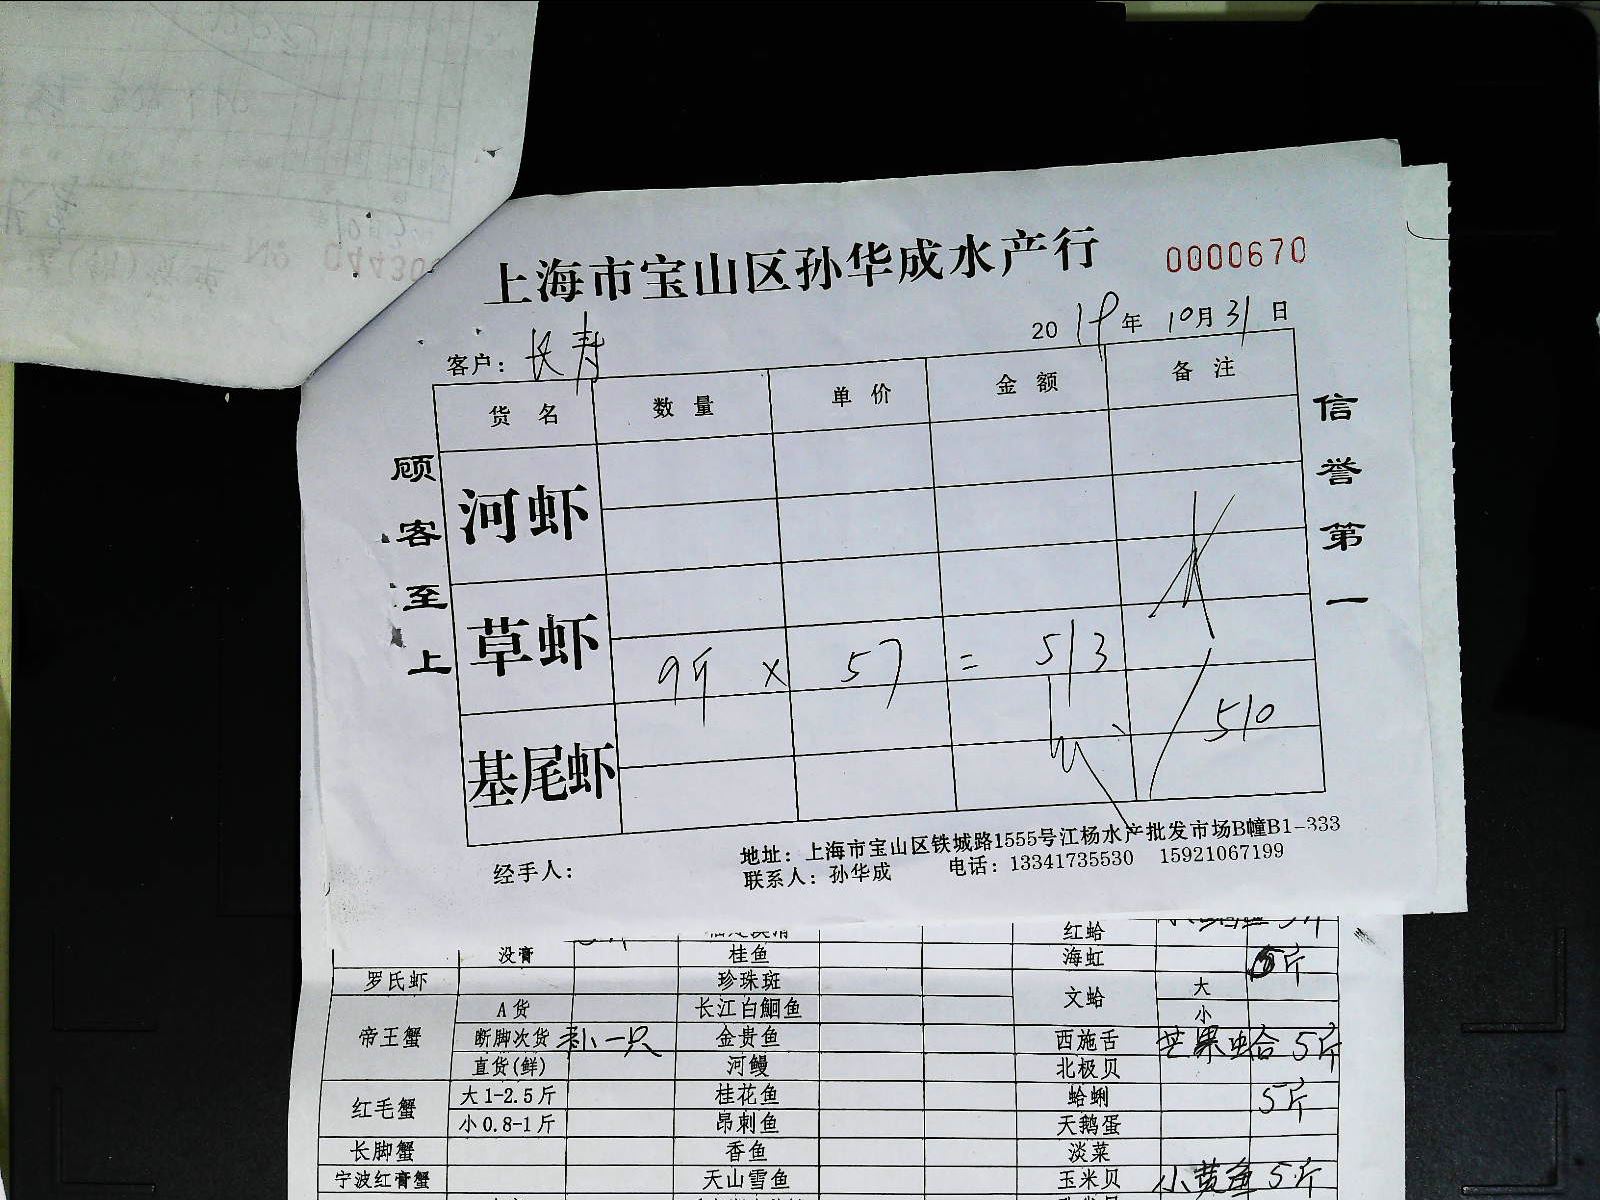 上海市宝山区孙华成水产行 0000670
客户: 长寿 2019年10月31日
货名 数量 单价 金额 备注
顾客至上
信誉第一
河虾
草虾
9斤 × 57 = 513
510
基尾虾
经手人:
地址: 上海市宝山区铁城路1555号江杨水产批发市场B幢B1-333
联系人: 孙华成 电话: 13341735530 15921067199
№ 04430
红蛤
没膏 桂鱼 海虹 5斤
罗氏虾 珍珠斑 文蛤 大
A货 长江白鮰鱼 小
帝王蟹 断脚次货 补一只 金贵鱼 西施舌 芒果蛤 5斤
直货(鲜) 河鳗 北极贝
红毛蟹 大1-2.5斤 桂花鱼 蛤蜊 5斤
小0.8-1斤 昂刺鱼 天鹅蛋
长脚蟹 香鱼 淡菜
宁波红膏蟹 天山雪鱼 玉米贝 小黄鱼 5斤